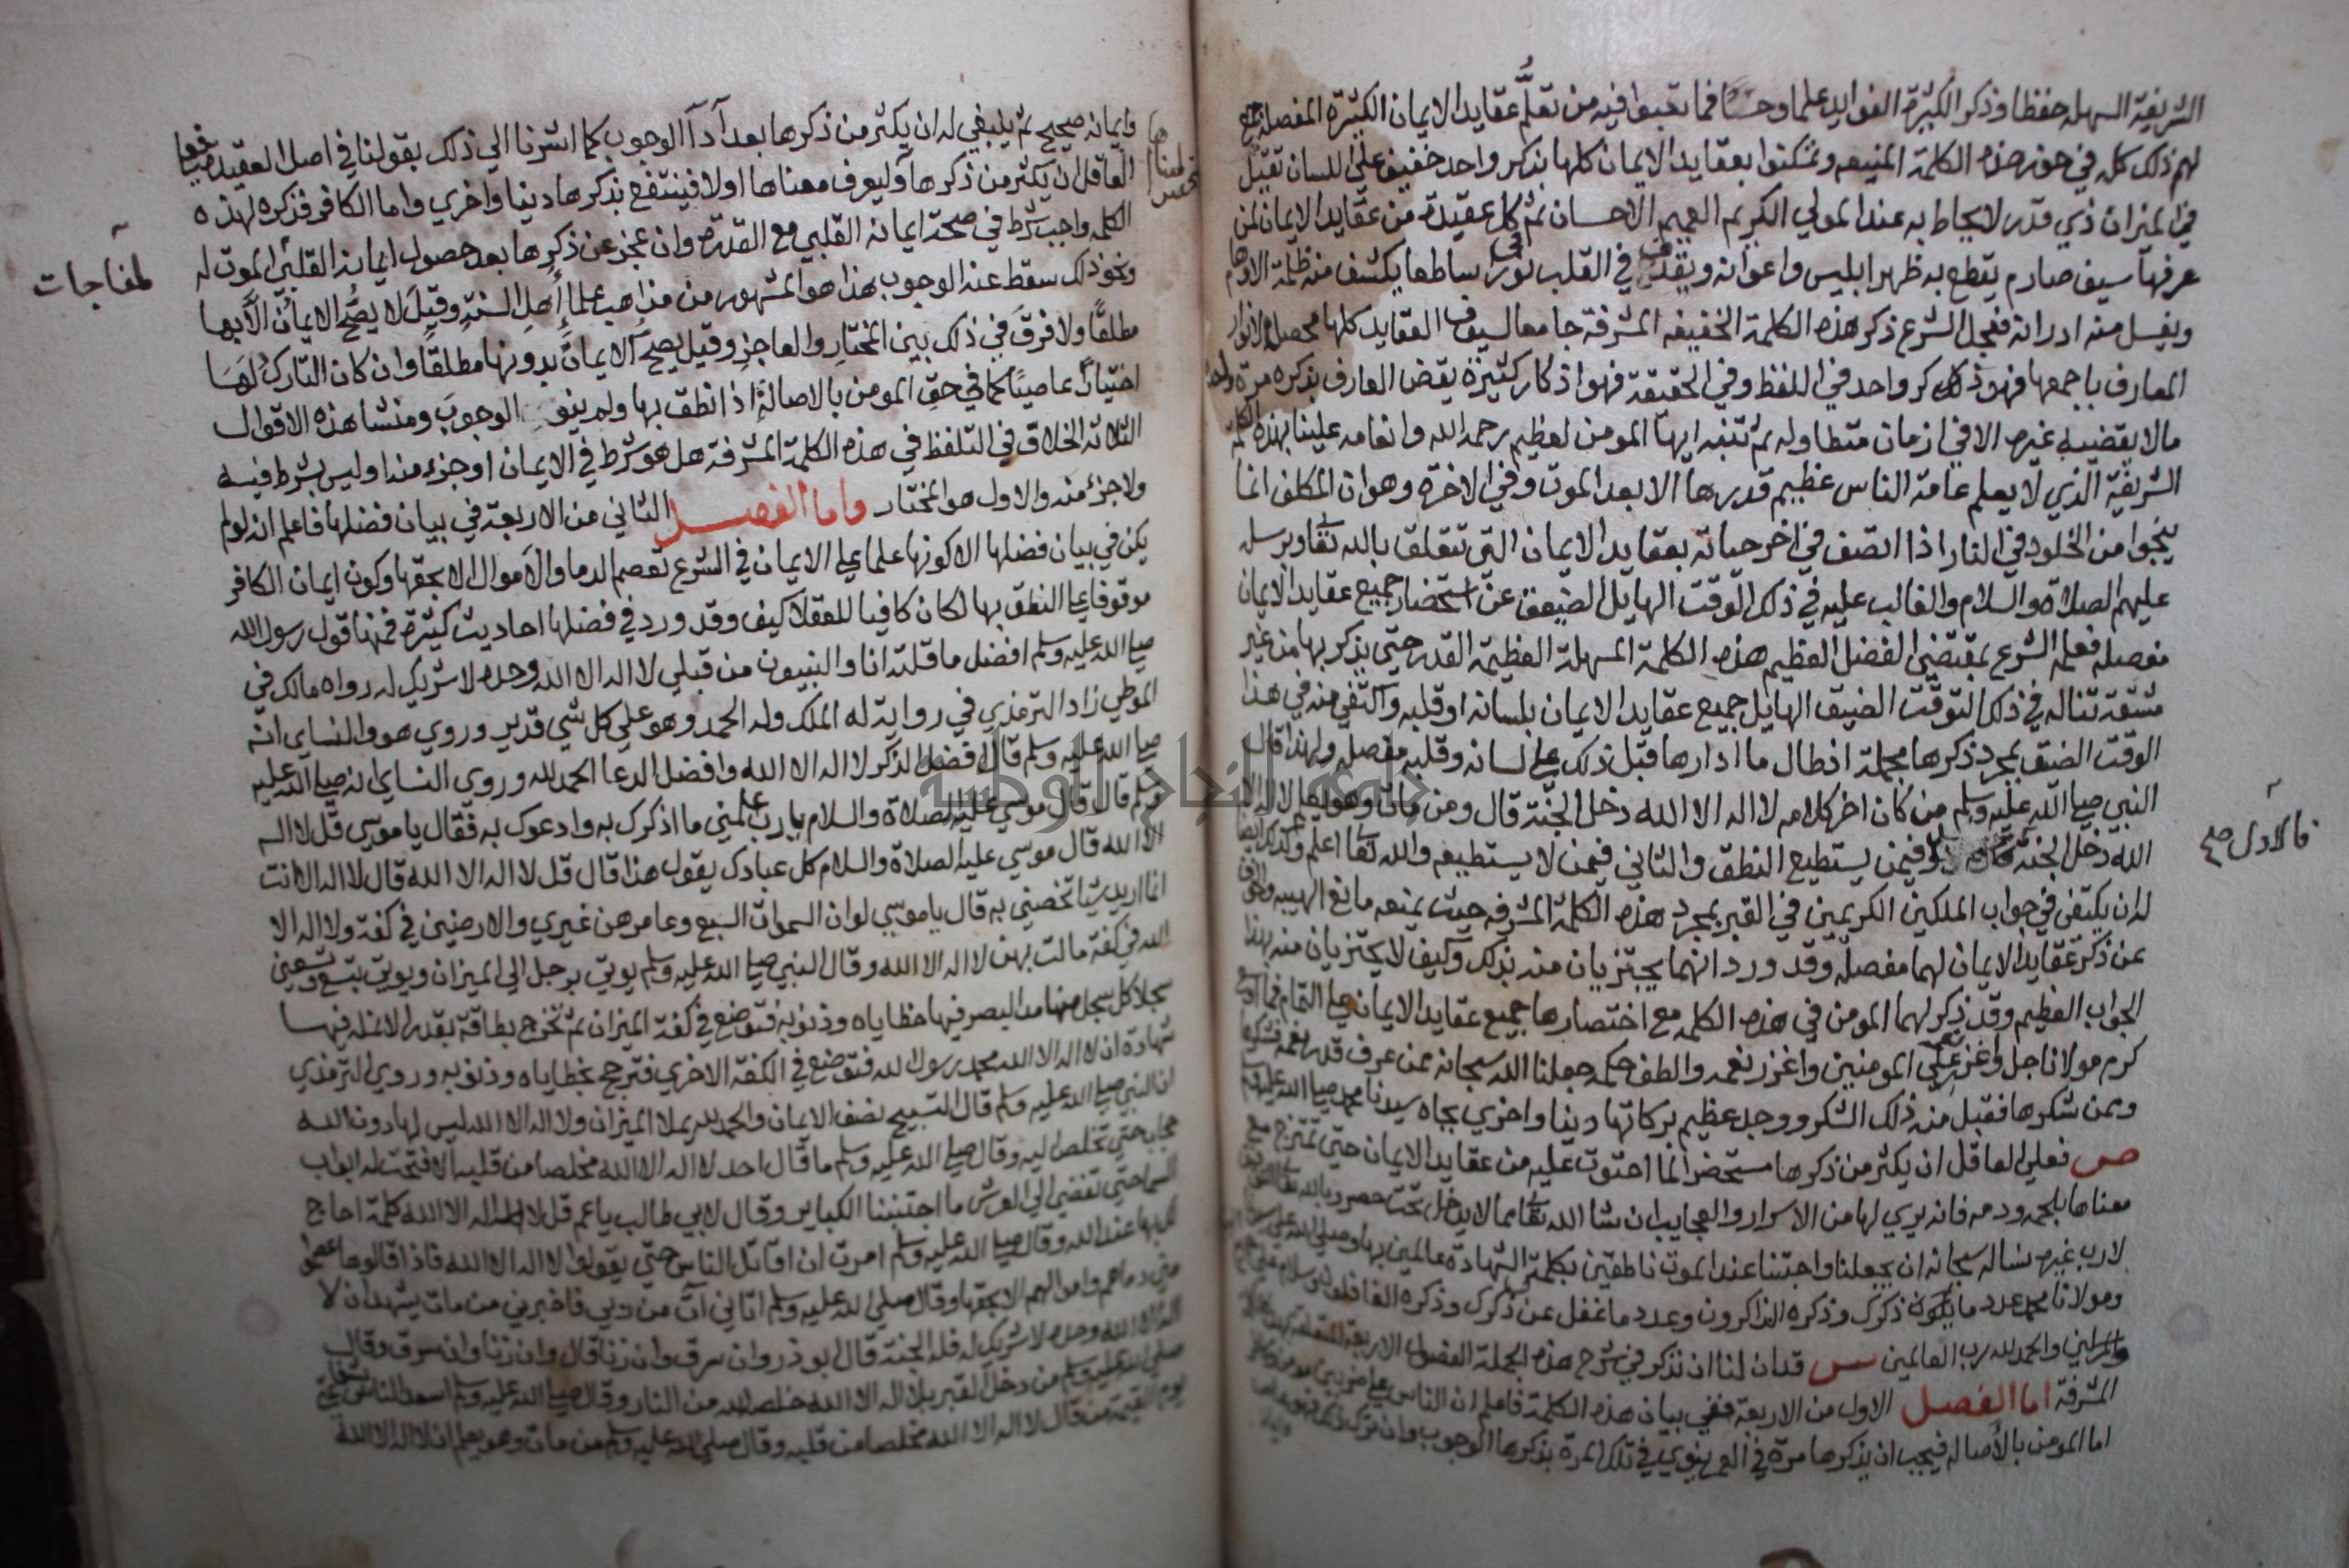 الشريفة السهله حفظا وذكر الكثيرة الفوايد علما وحسا فما تعبوا فيه من تعلم عقايد الايمان الكثيرة المفصله جمع
لهم ذلك كله في حوز هذه الكلمة المنيعه وتمكنوا بعقايد الايمان كلها بذكر واحد خفيف على اللسان ثقيل
في الميزان ذي قدر لا يحاط به عند المولي الكريم العميم الاحسان ثم كل عقيدة من عقايد الايمان لمن
عرفها سيف صارم يقطع به ظهر ابليس واعوانه ويقذف في القلب نورا ساطعا يكشف منه ظلمة الاوهام
ويغسل منه ادرانه فجعل الشرع ذكر هذه الكلمة الخفيفه المشرفة جامعا لسيوف العقايد كلها محصلا لانوار
المعارف باجمعها فهو ذكر واحد في اللفظ وفي الحقيقة فهو اذكار كثيرة يقض العارف بذكره مرة واحدة
مالا يقضيه غيره الا في ازمان متطاوله ثم تنبه ايها المومن لعظيم رحمه الله وانعامه علينا بهذه الكلمة
الشريفة الذي لا يعلم عامة الناس عظيم قدرها الا بعد الموت وفي الاخرة وهو ان المكلف انما
ينجوا من الخلود في النار اذا اتصف في اخر حياته بعقايد الايمان التي تتعلق بالله تعالى وبرسله
عليهم الصلاة والسلام والغالب عليه في ذلك الوقت الهايل الضيعف عن استحضار جميع عقايد الايمان
مفصله فعلمه الشرع بمقتضي الفضل العظيم هذه الكلمة السهلة العظيمة القدر حتي يذكر بها من غير
مشقة تناله في ذلك الوقت الضيق الهايل جميع عقايد الايمان بلسانه او قلبه واكتفي منه في هذا
الوقت الضيق بمجرد ذكرها مجملة اذ طال ما ادارها قبل ذلك علي لسانه وقلبه مفصله ولهذا قال
النبي صلي الله عليه وسلم من كان اخر كلامه لا اله الا الله دخل الجنة قال ومن مات وهو يعلم لا اله الا
الله دخل الجنة فيمن يستطيع النطق والثاني فيمن لا يستطيعه والله تعالى اعلم وكذلك ايضا
فالاول صح
له ان يكتفي في جواب الملكين الكريمين في القبر بمجرد هذه الكلمة المشرفه حيث يمنعه مانع الهيبه والخوف
عن ذكر عقايد الايمان لهما مفصله وقد ورد انهما يجتزيان منه بذلك وكيف لا يجتزيان منه بهذا
الجواب العظيم وقد ذكر لهما المومن في هذه الكلمه مع اختصارها جميع عقايد الايمان علي التمام فما اوسع
كرم مولانا جل وعز علي المومنين واغزر نعمه والطف حكمه جعلنا الله سبحانه ممن عرف قدر نعمه فشكرها
وممن شكرها فقبل منه ذلك الشكر ووجد عظيم بركاتها دينا واخري بجاه سيدنا محمد صلي الله عليه وسلم
ص فعلي العاقل ان يكثر من ذكرها مستحضرا لما احتوت عليه من عقايد الايمان حتي تمتزج مع
معناها بلحمه ودمه فانه يري لها من الاسرار والعجايب ان شا الله تعالى مما لا يدخل تحت حصر وبالله تعالى التوفيق
لا رب غيره نساله سبحانه ان يجعلنا واحبتنا عند الموت ناطقين بكلمة الشهادة عالمين بها وصلي الله على
ومولانا محمد عدد ما ذكرك وذكره الذاكرون وعدد ما غفل عن ذكرك وذكره الغافلون وسلام على
والحمد لله رب العالمين س قد ان لنا ان نذكر في شرح هذه الجملة الفصول الاربعة المتعلقة بهذه الكلمة
المشرفة اما الفصل الاول من الاربعة ففي بيان هذه الكلمة فاعلم ان الناس علي ضربين مومن وكافر
اما المومن بالاصاله فيجب ان يذكرها مرة في العمر ينوي في تلك المرة بذكرها الوجوب وان ترك ذلك فهو عاص
وايمانه صحيح ثم ينبغي له ان يكثر من ذكرها بعد آدآ الوجوب كما اشرنا الي ذلك بقولنا في اصل العقيدة
العاقل ان يكثر من ذكرها وليعرف معناها اولا فينتفع بذكرها دنيا واخري واما الكافر فذكره لهذه
الكلمه واجب شرط في صحة ايمانه القلبي مع القدرة وان عجز عن ذكرها بعد حصول ايمانه القلبي الموت له
لمفاجات
ونحو ذلك سقط عنه الوجوب هذا هو المشهور من مذاهب علما اهل السنة وقيل لا يصح الايمان الا بها
مطلقا ولا فرق في ذلك بين المختار والعاجز وقيل يصح الايمان بدونها مطلقا وان كان التارك لها
اختيارا عاصيا كما في حق المومن بالاصالة اذا نطق بها ولم ينو الوجوب ومنشا هذه الاقوال
الثلاثة الخلاف في التلفظ في هذه الكلمة المشرفة هل هو شرط في الايمان او جزء منه او ليس بشرط فيه
ولا جزء منه والاول هو المختار واما الفصل الثاني من الاربعة في بيان فضلها فاعلم انه لو لم
يكن في بيان فضلها الا كونها علما علي الايمان في الشرع تعصم الدما والاموال الا بحقها وكون ايمان الكافر
موقوفا علي النطق بها لكان كافيا للعقلا كيف وقد ورد في فضلها احاديث كثيرة فمنها قول رسول الله
صلي الله عليه وسلم افضل ما قلته انا والنبيون من قبلي لا اله الا الله وحده لا شريك له رواه مالك في
الموطي زاد الترمذي في رواية له الملك وله الحمد وهو علي كل شي قدير وروي هو والنساي انه
صلي الله عليه وسلم قال افضل الذكر لا اله الا الله وافضل الدعا الحمد لله وروي النساي انه صلي الله عليه
وسلم قال قال موسي عليه الصلاة والسلام يا رب علمني ما اذكرك به وادعوك به فقال يا موسي قل لا اله
الا الله قال موسي عليه الصلاة والسلام كل عبادك يقول هذا قال قل لا اله الا الله قال لا اله الا انت
انما اريد شيا تخصني به قال يا موسي لو ان السموات السبع وعامرهن غيري والارضين في كفة ولا اله الا
الله في كفة مالت بهن لا اله الا الله وقال النبي صلي الله عليه وسلم يوتي برجل الي الميزان ويوتي بتسع وتسعين
سجلا كل سجل منها مد البصر فيها خطاياه وذنوبه فتوضع في كفة الميزان ثم تخرج بطاقة بقدر الانمله فيها
شهادة ان لا اله الا الله محمد رسول الله فتوضع في الكفة الاخري فترجح بخطاياه وذنوبه وروي الترمذي
ان النبي صلي الله عليه وسلم قال التسبيح نصف الايمان والحمد لله يملا الميزان ولا اله الا الله ليس لها دون الله
حجاب حتي تخلص اليه وقال صلي الله عليه وسلم ما قال احد لا اله الا الله مخلصا من قلبه الا فتحت له ابواب
السما حتي تفضي الي العرش ما اجتنبا الكباير وقال لابي طالب يا عم قل لا اله الا الله كلمة احاج
لك بها عند الله وقال صلي الله عليه وسلم امرت ان اقاتل الناس حتي يقولوا لا اله الا الله فاذا قالوها عصموا
مني دماهم واموالهم الا بحقها وقال صلي الله عليه وسلم اتاني آت من ربي فاخبرني من مات يشهد ان لا
اله الا الله وحده لا شريك له فله الجنة قال ابو ذر وان سرق وان زنا قال وان زنا وان سرق وقال
صلي الله عليه وسلم من دخل القبر بلا اله الا الله خلصه الله من النار وقال صلي الله عليه وسلم اسعد الناس بشفاعتي
يوم القيمة من قال لا اله الا الله مخلصا من قلبه وقال صلي الله عليه وسلم من مات وهو يعلم ان لا اله الا الله
جامعة النجاح الوطنية